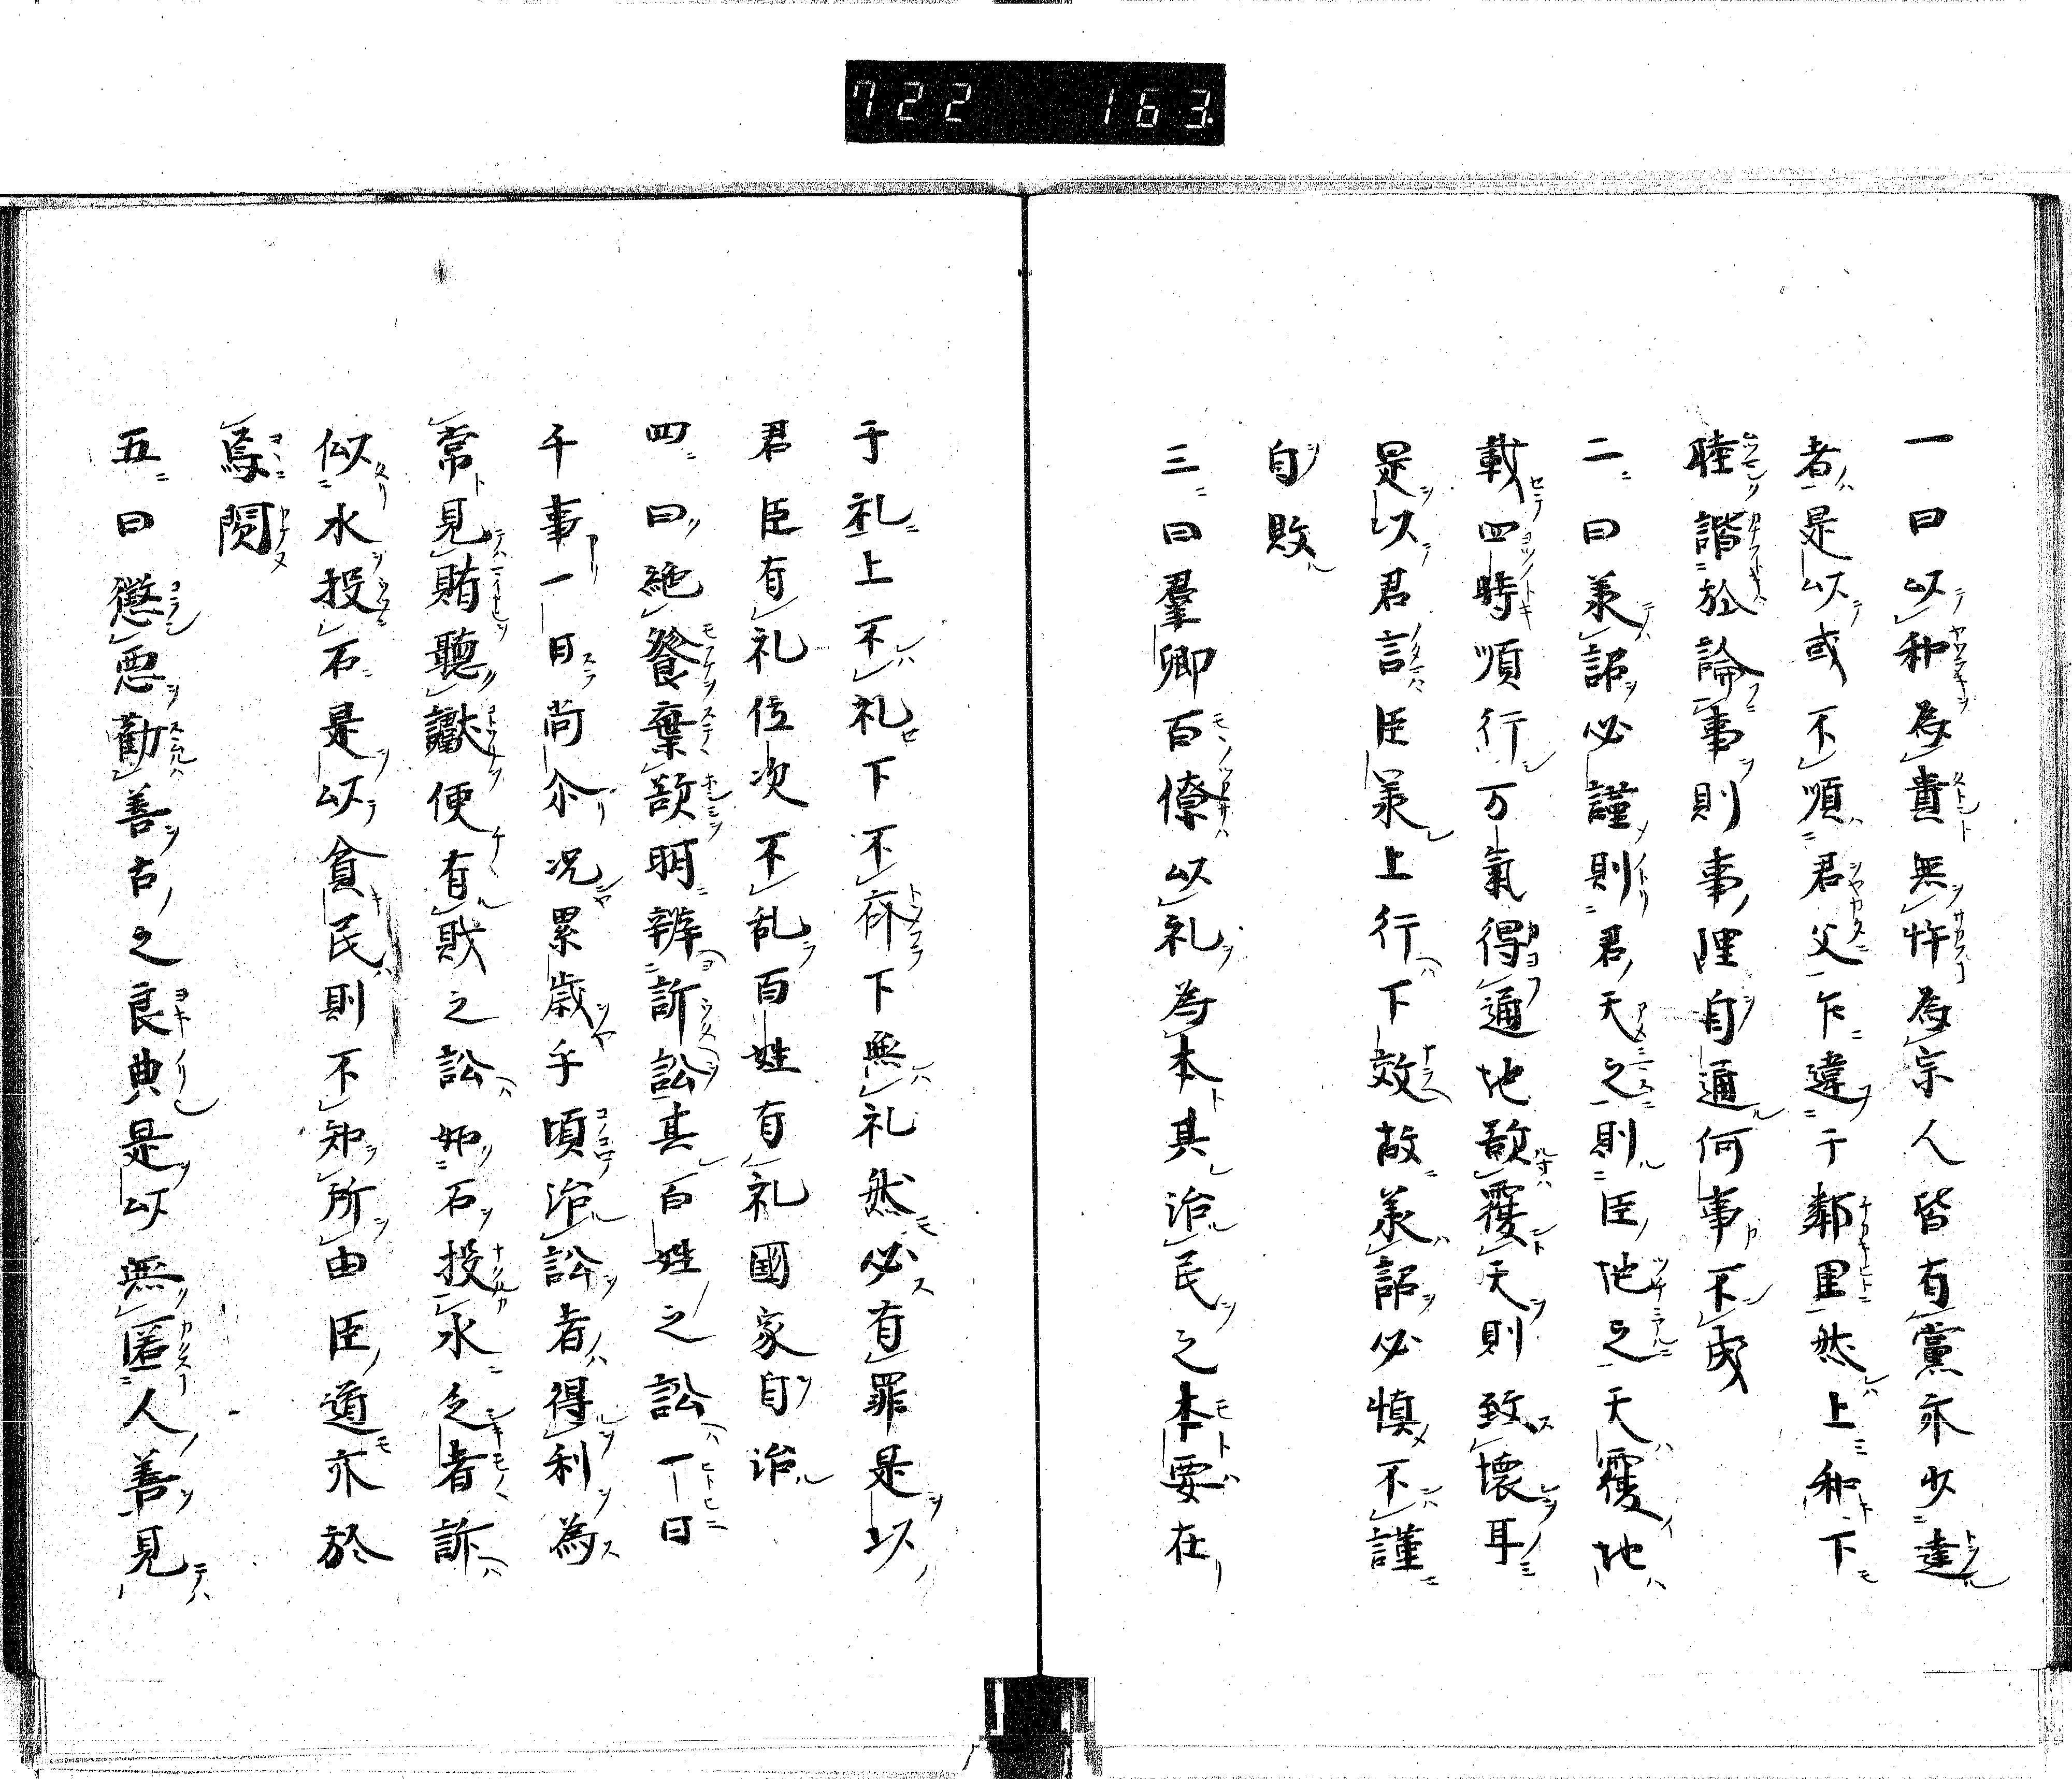 722 163.
一曰以和為貴無忤為宗人皆有黨亦少達
者是以或不順君父乍違于鄰里然上和下
睦諧於論事則事理自通何事不成
二曰羕詔必謹則君天之則臣地之天覆地
載四時順行万氣得通地欲覆天則致壊耳
是以君言臣羕上行下效故羕詔必慎不謹
自敗
三曰羣卿百僚以礼為本其治民之本要在
于礼上不礼下不齊下無礼然必有罪是以
君臣有礼位次不乱百姓有礼國家自治
四曰絶餮棄欲明辨訴訟其百姓之訟一日
千事一日尚尒况累歳乎頃治訟者得利為
常見賄聴讞便有財之訟如石投水乏者訴
似水投石是以貧民則不知所由臣道亦於
焉闕
五曰懲悪勸善古之良典是以無匿人善見